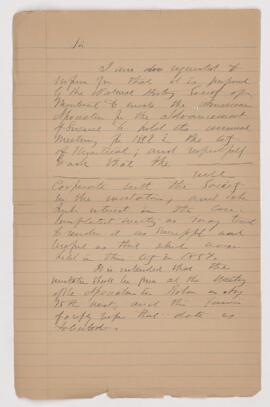 Sir
I am also requested to
inform you that it is proposed
by the Natural History Society of
Montreal to invite the American
Association for the advancement
of Science to hold its annual
Meeting for 1882 in the City
of Montreal; and respectfully
to ask that the
will
Cooperate with the Society
in the invitation, and take
such interest in the
as may tend
to render it as and
useful as that which was
held in this City in 1857.
It is intended that the
invitation shall be given at the Meeting
of the Association in Boston on
25th next, and the
reply before that date is
solicited.